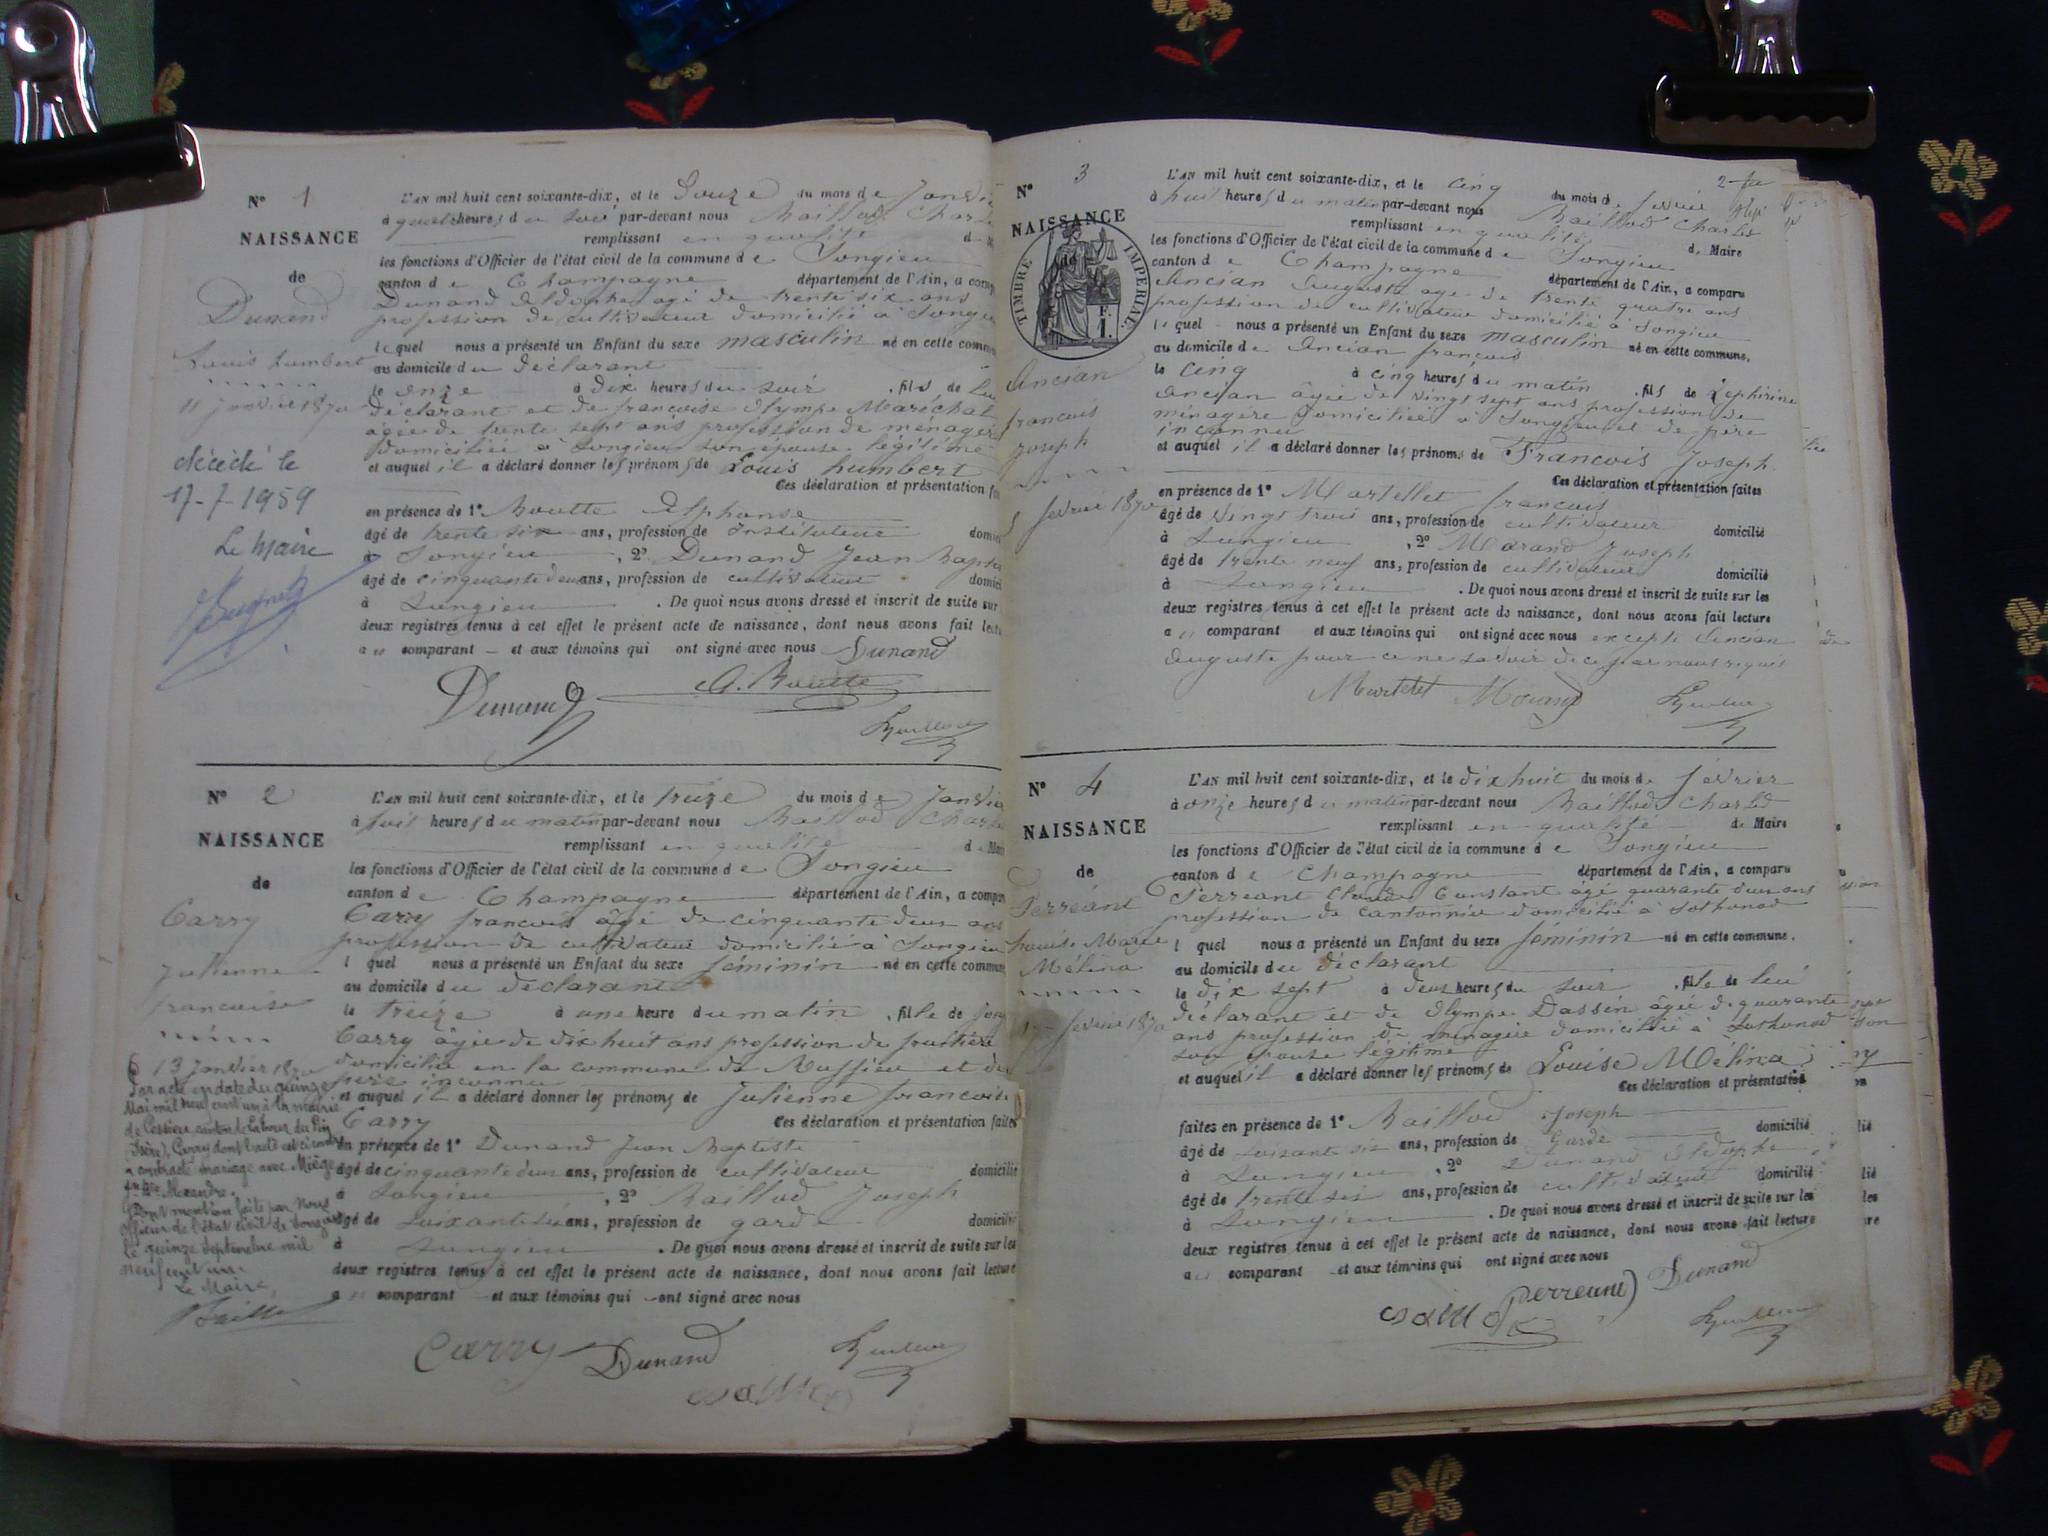 N° 1
NAISSANCE
de
Dunand
Louis humbert
11 janvier 1870
décédé le
17-7-1959
Le Maire
L'AN mil huit cent soixante-dix, et le Douze du mois de Janvie
à quatre heures du soir par-devant nous Baillod Charle
remplissant en qualité d
les fonctions d'Officier de l'état civil de la commune de Songieu
canton de Champagne département de l'Ain, a comp
Dunand Eldophe agé de trente six ans
profession de cultivateur domicilié à Songieu
lequel nous a présenté un Enfant du sexe masculin né en cette comm
au domicile du déclarant
le onze à dix heures du soir , fils de lui
déclarant et de françoise Olympe Maréchal
âgée de trente sept ans profession de ménagère
domiciliée à Songieu son épouse légitime
et auquel il a déclaré donner les prénoms de Louis humbert
Ces déclaration et présentation fai
en présence de 1° Boutte Alphonse
âgé de trente six ans, profession de Instituteur domici
à Songieu , 2° Dunand Jean Bapti
âgé de cinquante deux ans, profession de cultivateur domici
à Songieu . De quoi nous avons dressé et inscrit de suite sur
deux registres tenus à cet effet le présent acte de naissance, dont nous avons fait lectu
au comparant et aux témoins qui ont signé avec nous Dunand
Dunand A. Boutte
N° 2
NAISSANCE
de
Carry
Julienne
francoise
13 Janvier 1870
Par acte en date du quinze
Mai mil neuf cent un à la mairie
de Cessieu canton de Latour du Pin
(Isère), Carry dont l'acte est ci contre
a contracté mariage avec Miège
Alexandre.
Dont mention faite par Nous
officier de l'état civil de Songieu
le quinze Septembre mil
neuf cent un.
Le Maire,
L'AN mil huit cent soixante-dix, et le treize du mois de Janvie
à huit heures du matin par-devant nous Baillod Charle
remplissant en qualité de Mair
les fonctions d'Officier de l'état civil de la commune de Songieu
canton de Champagne département de l'Ain, a compar
Carry francois âgé de cinquante deux ans
profession de cultivateur domicilié à Songieu
l quel nous a présenté un Enfant du sexe féminin né en cette commun
au domicile du déclarant
le treize à une heure du matin , fille de
Carry âgée de dix huit ans profession de fruitière
domiciliée en la commune de Ruffieu et de
père inconnu
et auquel il a déclaré donner les prénoms de Julienne francoise
Carry Ces déclaration et présentation faites
en présence de 1° Dunand Jean Baptiste
âgé de cinquante deux ans, profession de cultivateur domicilié
à Songieu , 2° Baillod Joseph
âgé de soixante six ans, profession de garde domicilié
à Songieu . De quoi nous avons dressé et inscrit de suite sur les
deux registres tenus à cet effet le présent acte de naissance, dont nous avons fait lecture
au comparant et aux témoins qui ont signé avec nous
Carry Dunand
N° 3
NAISSANCE
de
TIMBRE IMPERIAL
1 F.
Ancian
francois
Joseph
5 fevrier 1870
L'AN mil huit cent soixante-dix, et le cinq du mois de fevrier
à huit heures du matin par-devant nous Baillod Charles
remplissant en qualité de Maire
les fonctions d'Officier de l'état civil de la commune de Songieu
canton de Champagne département de l'Ain, a comparu
Ancian Auguste age de trente quatre ans
profession de cultivateur domicilié à Songieu
lequel nous a présenté un Enfant du sexe masculin né en cette commune.
au domicile de Ancian francois
le cinq à cinq heures du matin , fils de Zephirine
Ancian âgée de vingt sept ans profession de
ménagère domiciliée à Songieu et de père
inconnu
et auquel il a déclaré donner les prénoms de Francois Joseph
Ces déclaration et présentation faites
en présence de 1° Martellet francois
âgé de vingt trois ans, profession de cultivateur domicilié
à Songieu , 2° Morand Joseph
âgé de trente neuf ans, profession de cultivateur domicilié
à Songieu . De quoi nous avons dressé et inscrit de suite sur les
deux registres tenus à cet effet le présent acte de naissance, dont nous avons fait lecture
au comparant et aux témoins qui ont signé avec nous excepté Ancian
Auguste pour ce ne savoir de ce par nous requis
Martelet Morand
N° 4
NAISSANCE
de
Perréant
Louise Marie
Mélina
17 fevrier 1870
L'AN mil huit cent soixante-dix, et le dix huit du mois de février
à onze heures du matin par-devant nous Baillod Charles
remplissant en qualité de Maire
les fonctions d'Officier de l'état civil de la commune de Songieu
canton de Champagne département de l'Ain, a comparu
Perreant Claude Constant âgé quarante deux ans
profession de cantonnier domicilié à Sothonod
l quel nous a présenté un Enfant du sexe féminin né en cette commune.
au domicile du déclarant
le dix sept à deux heures du soir , fille de lui
déclarant et de Olympe Dassin âgée de quarante
ans profession de ménagère domiciliée à Sothonod
son épouse légitime
et auquel il a déclaré donner les prénoms de Louise Mélina
Ces déclaration et présentation
faites en présence de 1° Baillod Joseph
âgé de soixante six ans, profession de Garde domicilié
à Songieu , 2° Dunand Eldophe
âgé de trente six ans, profession de cultivateur domicilié
à Songieu . De quoi nous avons dressé et inscrit de suite sur les
deux registres tenus à cet effet le présent acte de naissance, dont nous avons fait lecture
au comparant et aux témoins qui ont signé avec nous
Perreant Dunand